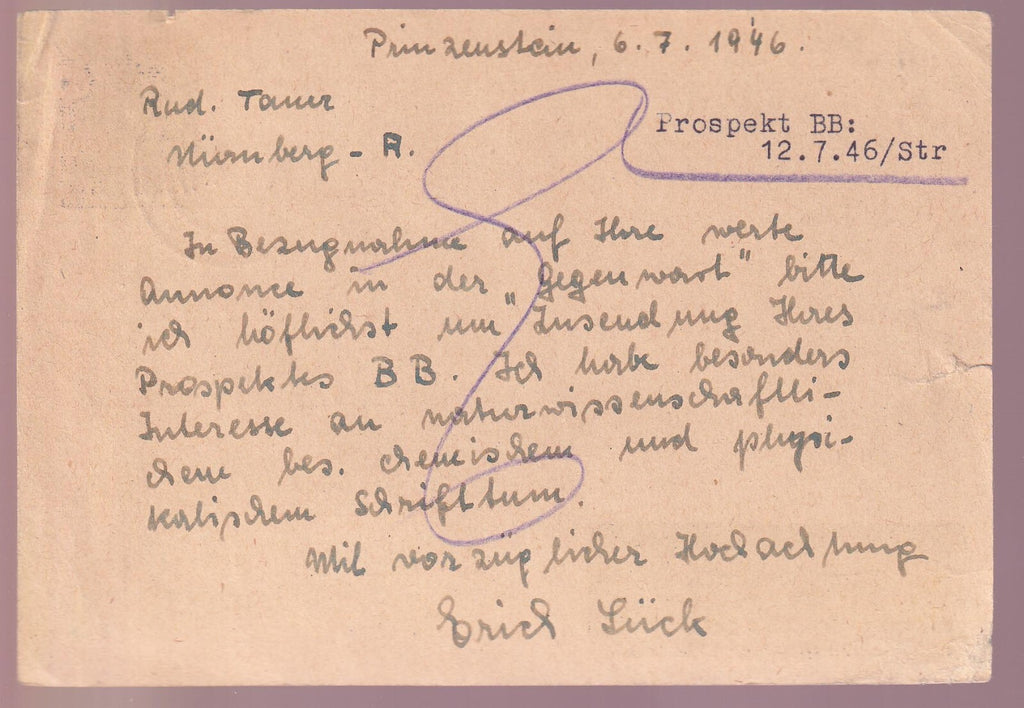 Prinzenstein, 6.7.1946.
Rud. Tauer
Nürnberg-A.
Prospekt BB:
12.7.46/Str
In Bezugnahme auf Ihre werte
Annonce in der „Gegenwart" bitte
ich höflichst um Zusendung Ihres
Prospektes BB. Ich habe besonders
Interesse an naturwissenschaftli-
chem bes. chemischem und physi-
kalischem Schrifttum.
Mit vorzüglicher Hochachtung
Erich Lück